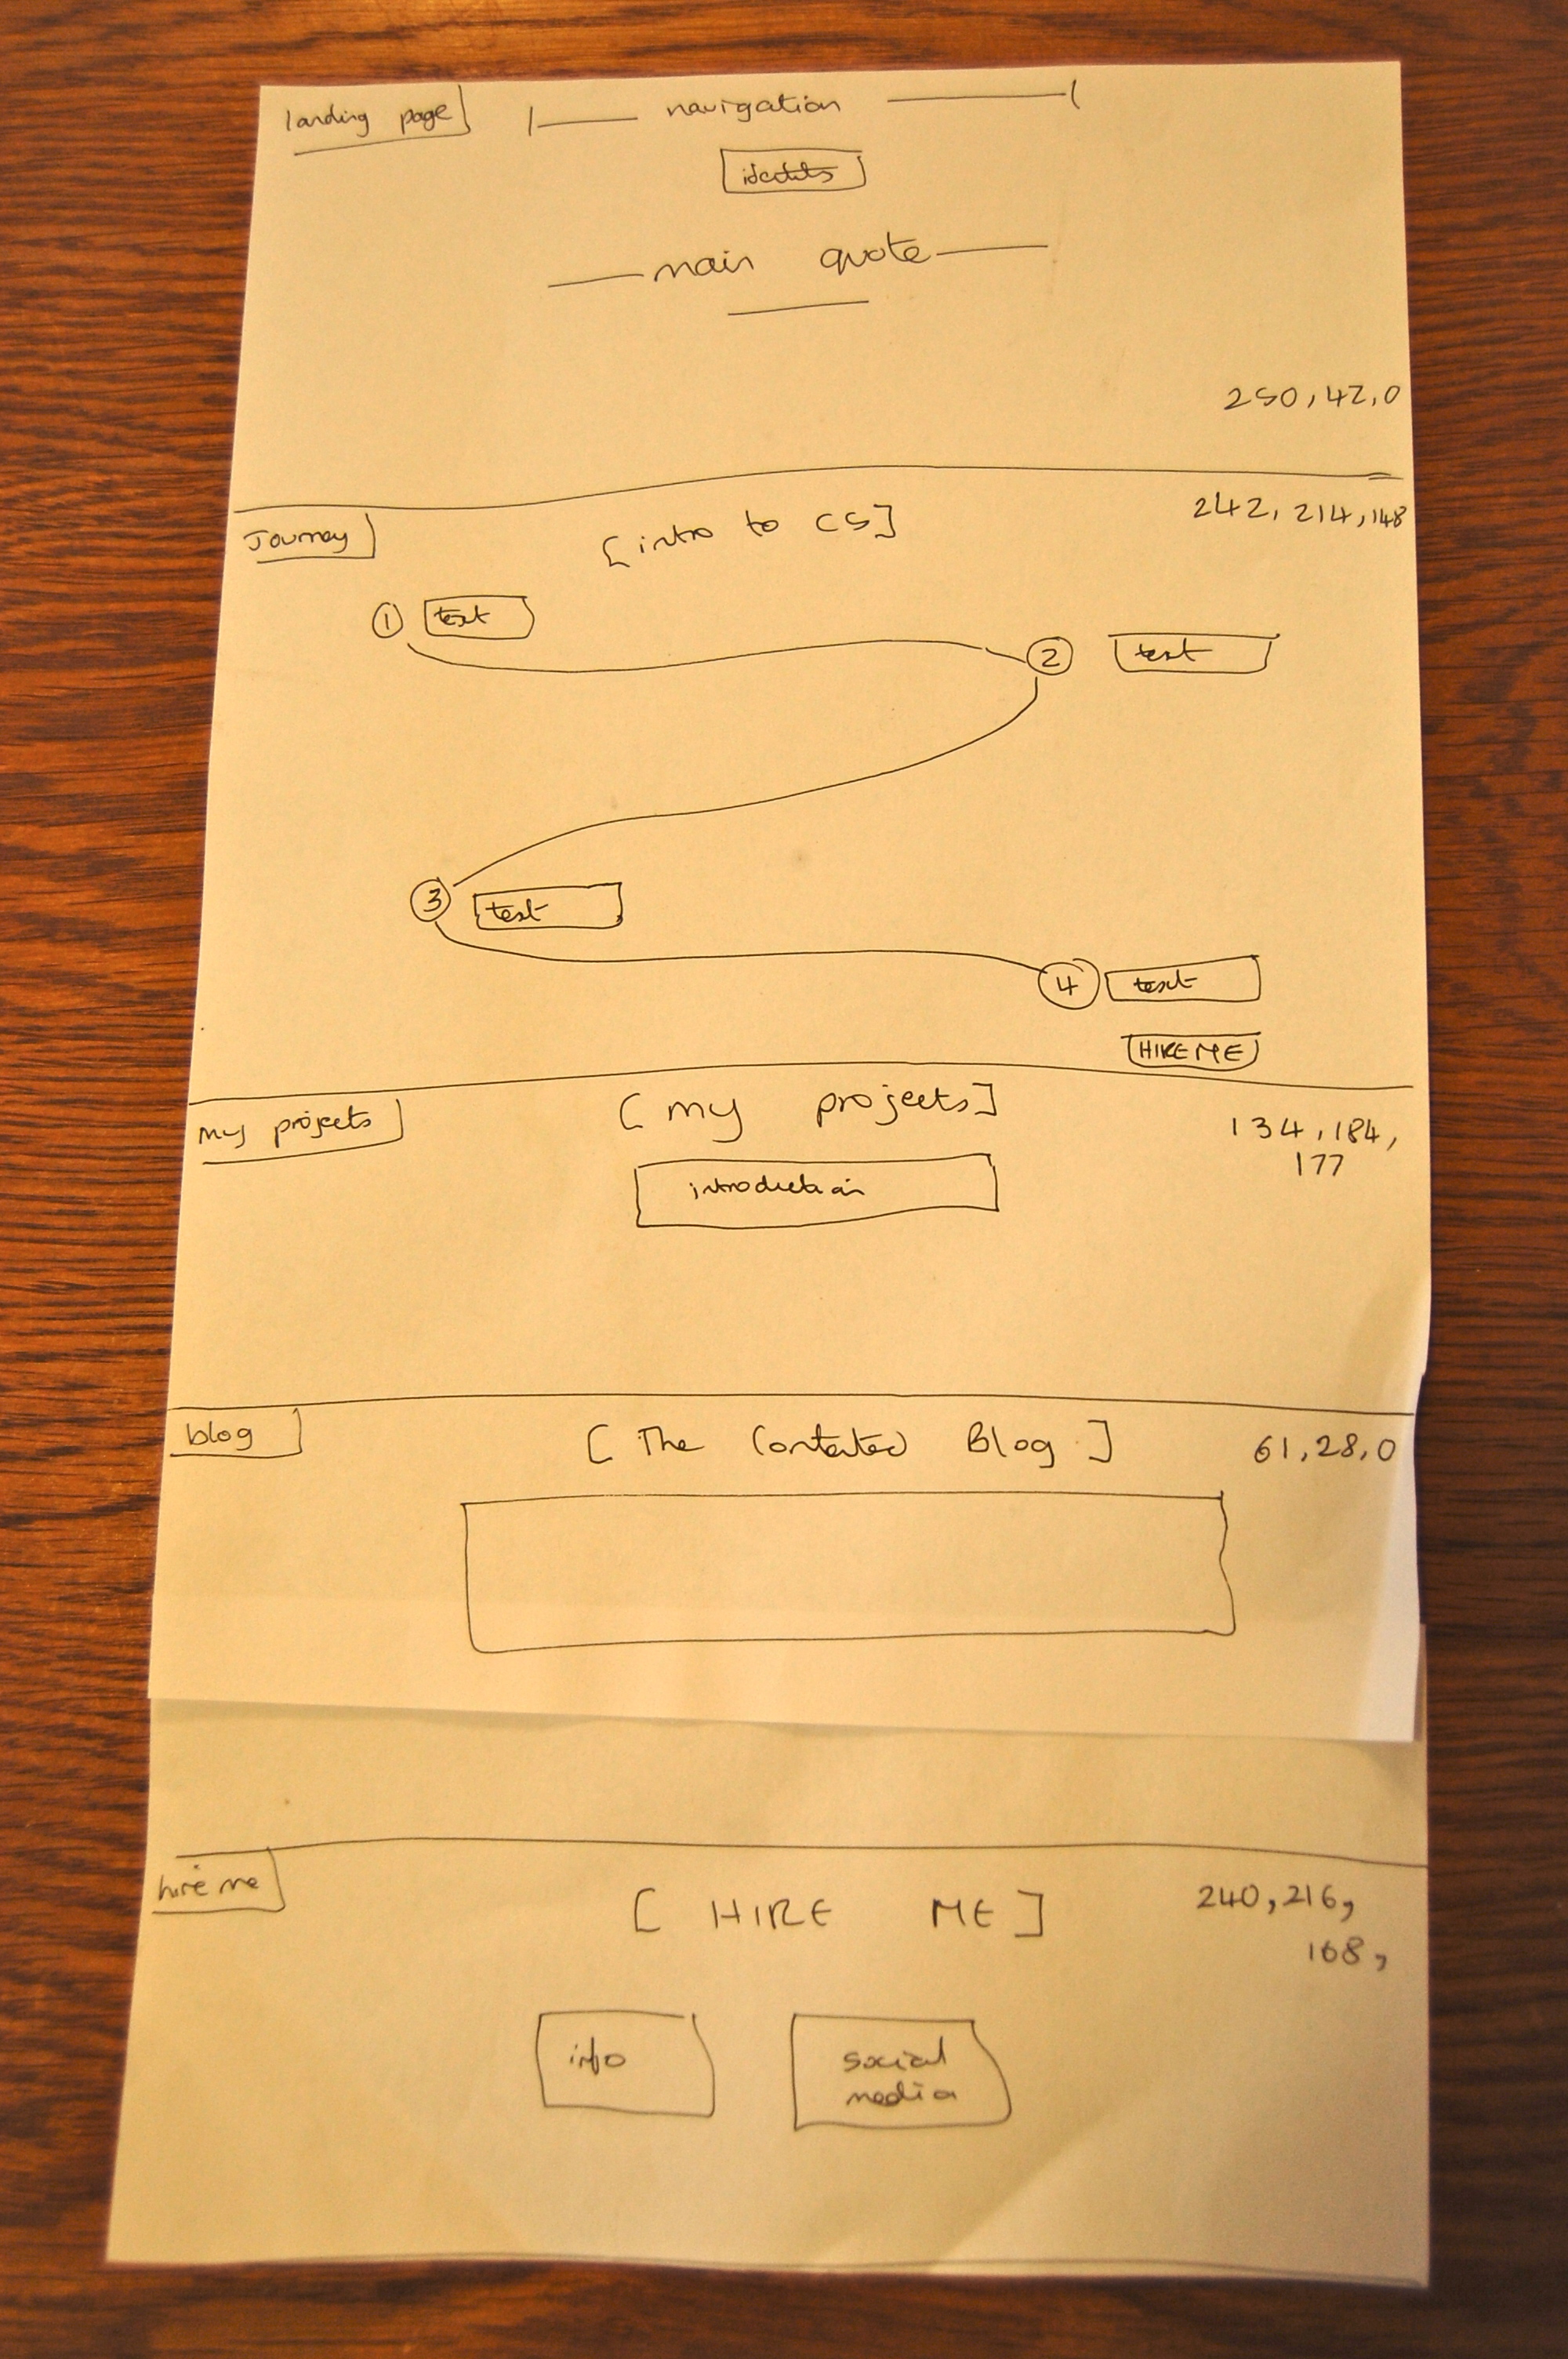 landing page
navigation
identity
main quote
250,42,0
Journey
[intro to CS]
242, 214,148
1 text
2 text
3 text
4 text
HIRE ME
my projects
[my projects]
134,184,
177
introduction
blog
[The Contented Blog]
61,28,0
hire me
[HIRE ME]
240,216,
168,
info
social
media